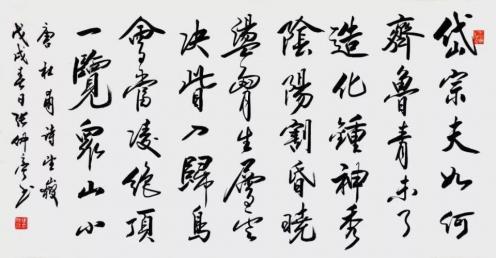 岱宗夫如何
齊魯青未了
造化鍾神秀
陰陽割昏曉
盪胷生層雲
決眥入歸鳥
會當凌絕頂
一覽眾山小
唐杜甫詩望嶽
戊戌春日張仲亭书